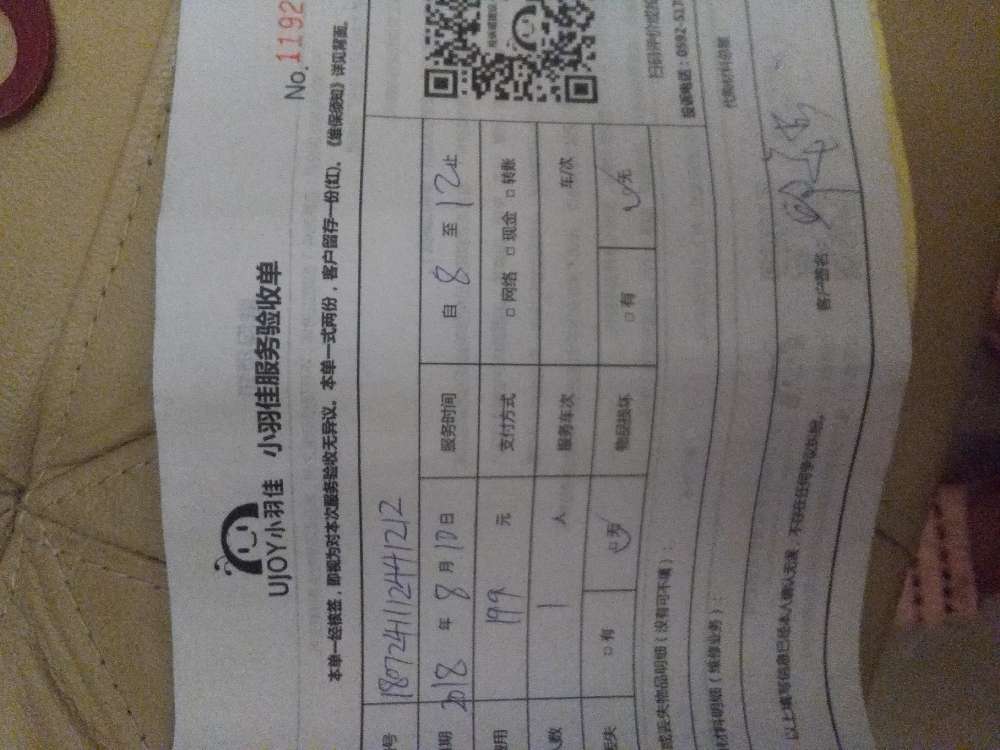 No. 1192
UJOY小羽佳 小羽佳服务验收单
本单一经核签，即视为对本次服务验收无异议。本单一式两份，客户留存一份(红)。《维保须知》详见背面。
号 180724112441212
期 2018 年 8 月 10 日 服务时间 自 8 至 12 止
费用 199 元 支付方式 □ 网络 □ 现金 □ 转账
人数 1 人 服务车次 车/次
丢失 □ 有 □ 无 物品损坏 □ 有 □ 无
或丢失物品明细（没有可不填）：
材料明细（维修业务）：
扫码评价或投
投诉电话：0592-517
以上填写信息已经本人确认无误，不存在任何争议纠纷。
客户签名：